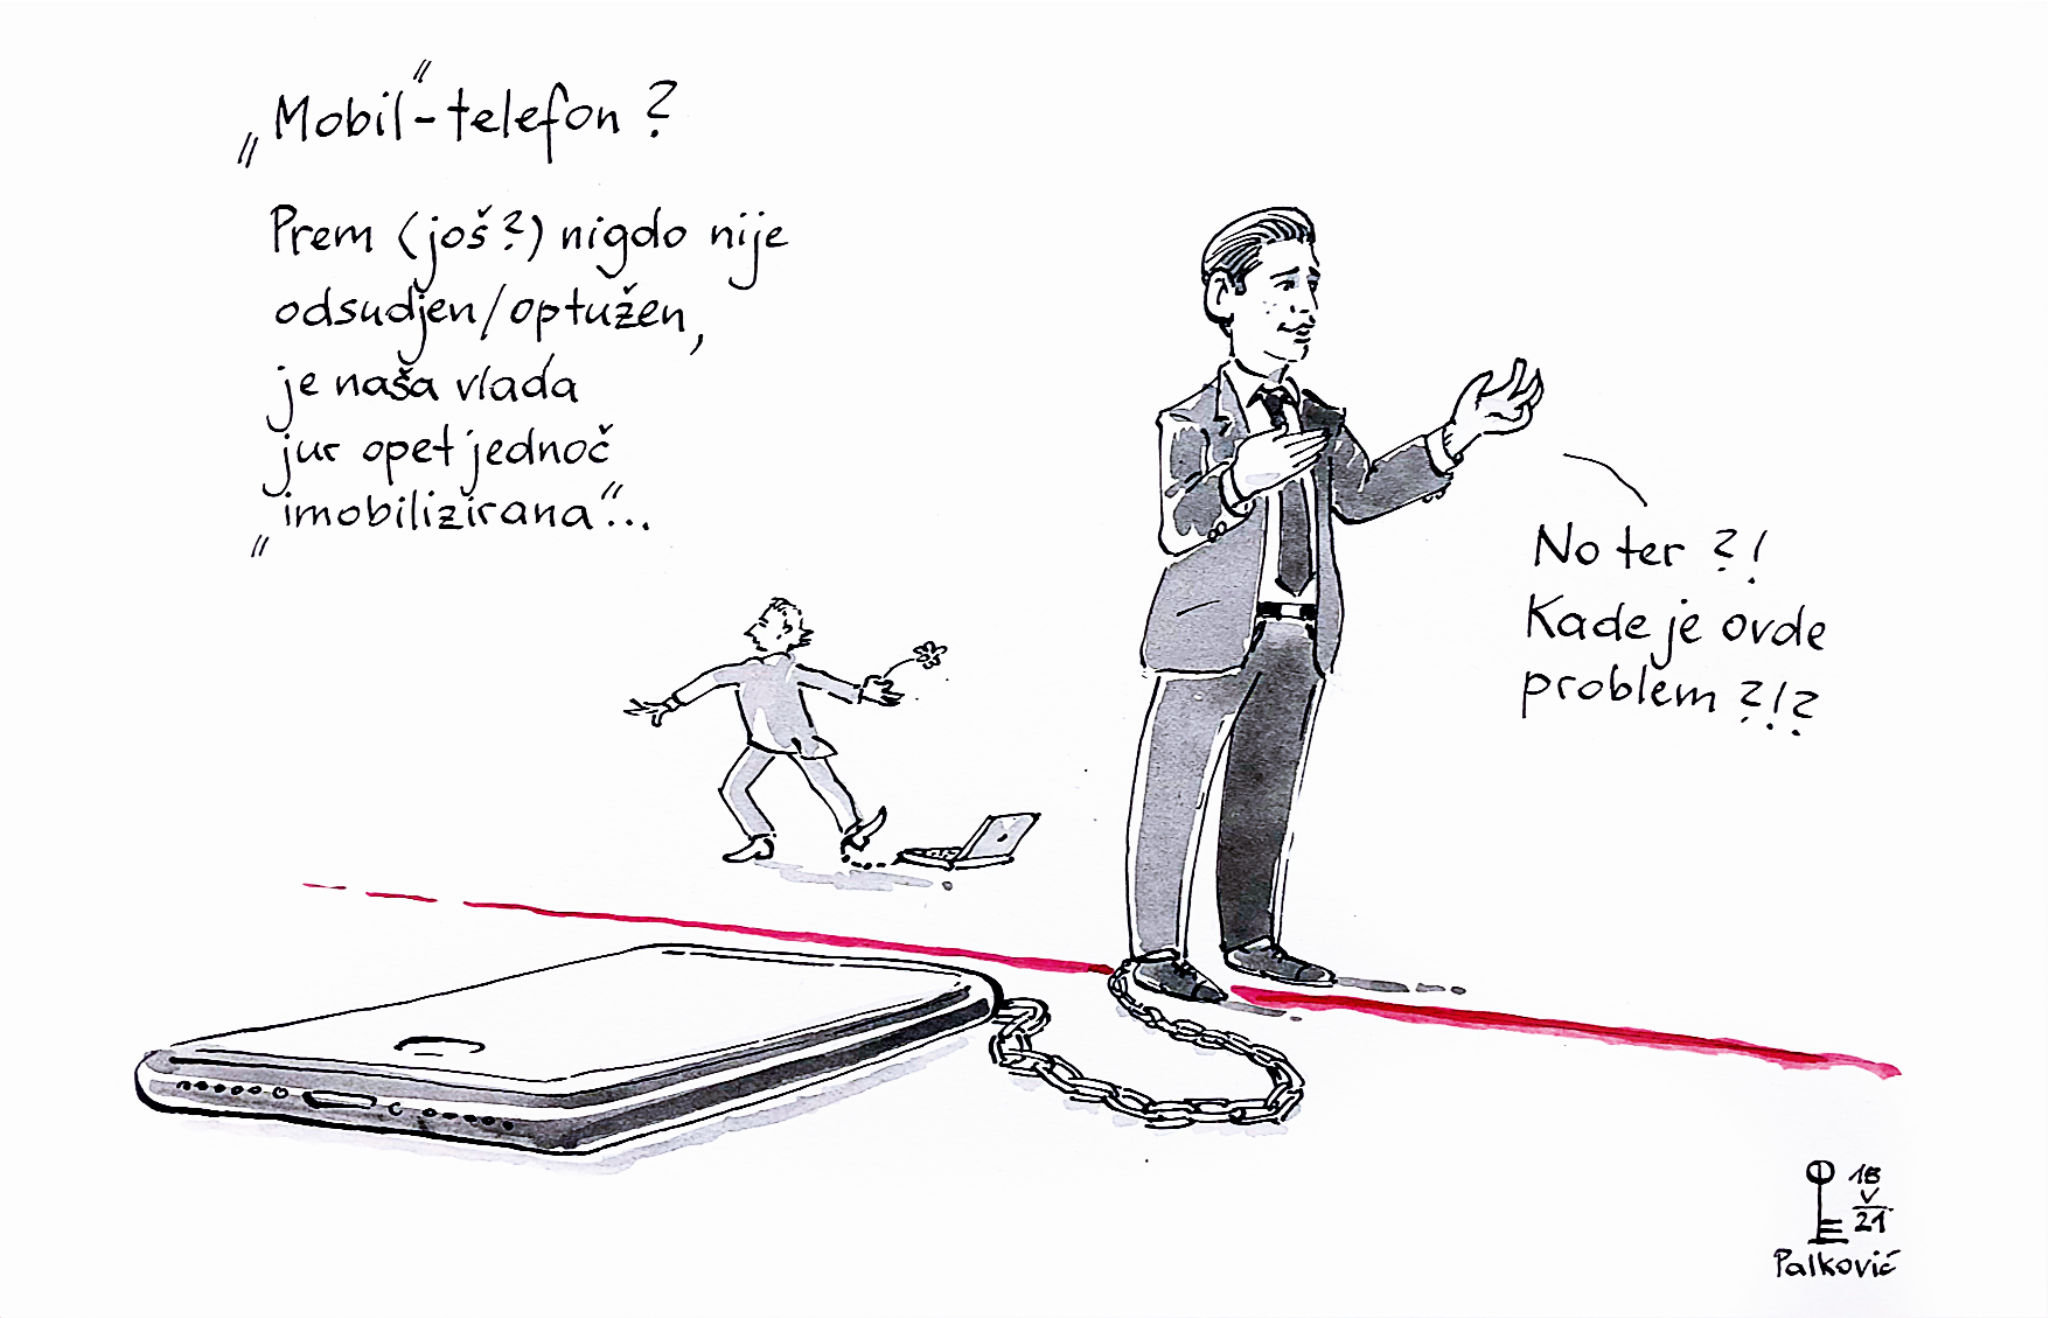 „Mobil"-telefon?
Prem (još?) nigdo nije
odsudjen/optužen,
je naša vlada
jur opet jednoč
„imobilizirana"...
No ter ?!
Kade je ovde
problem ?!?
18
V
21
Palković